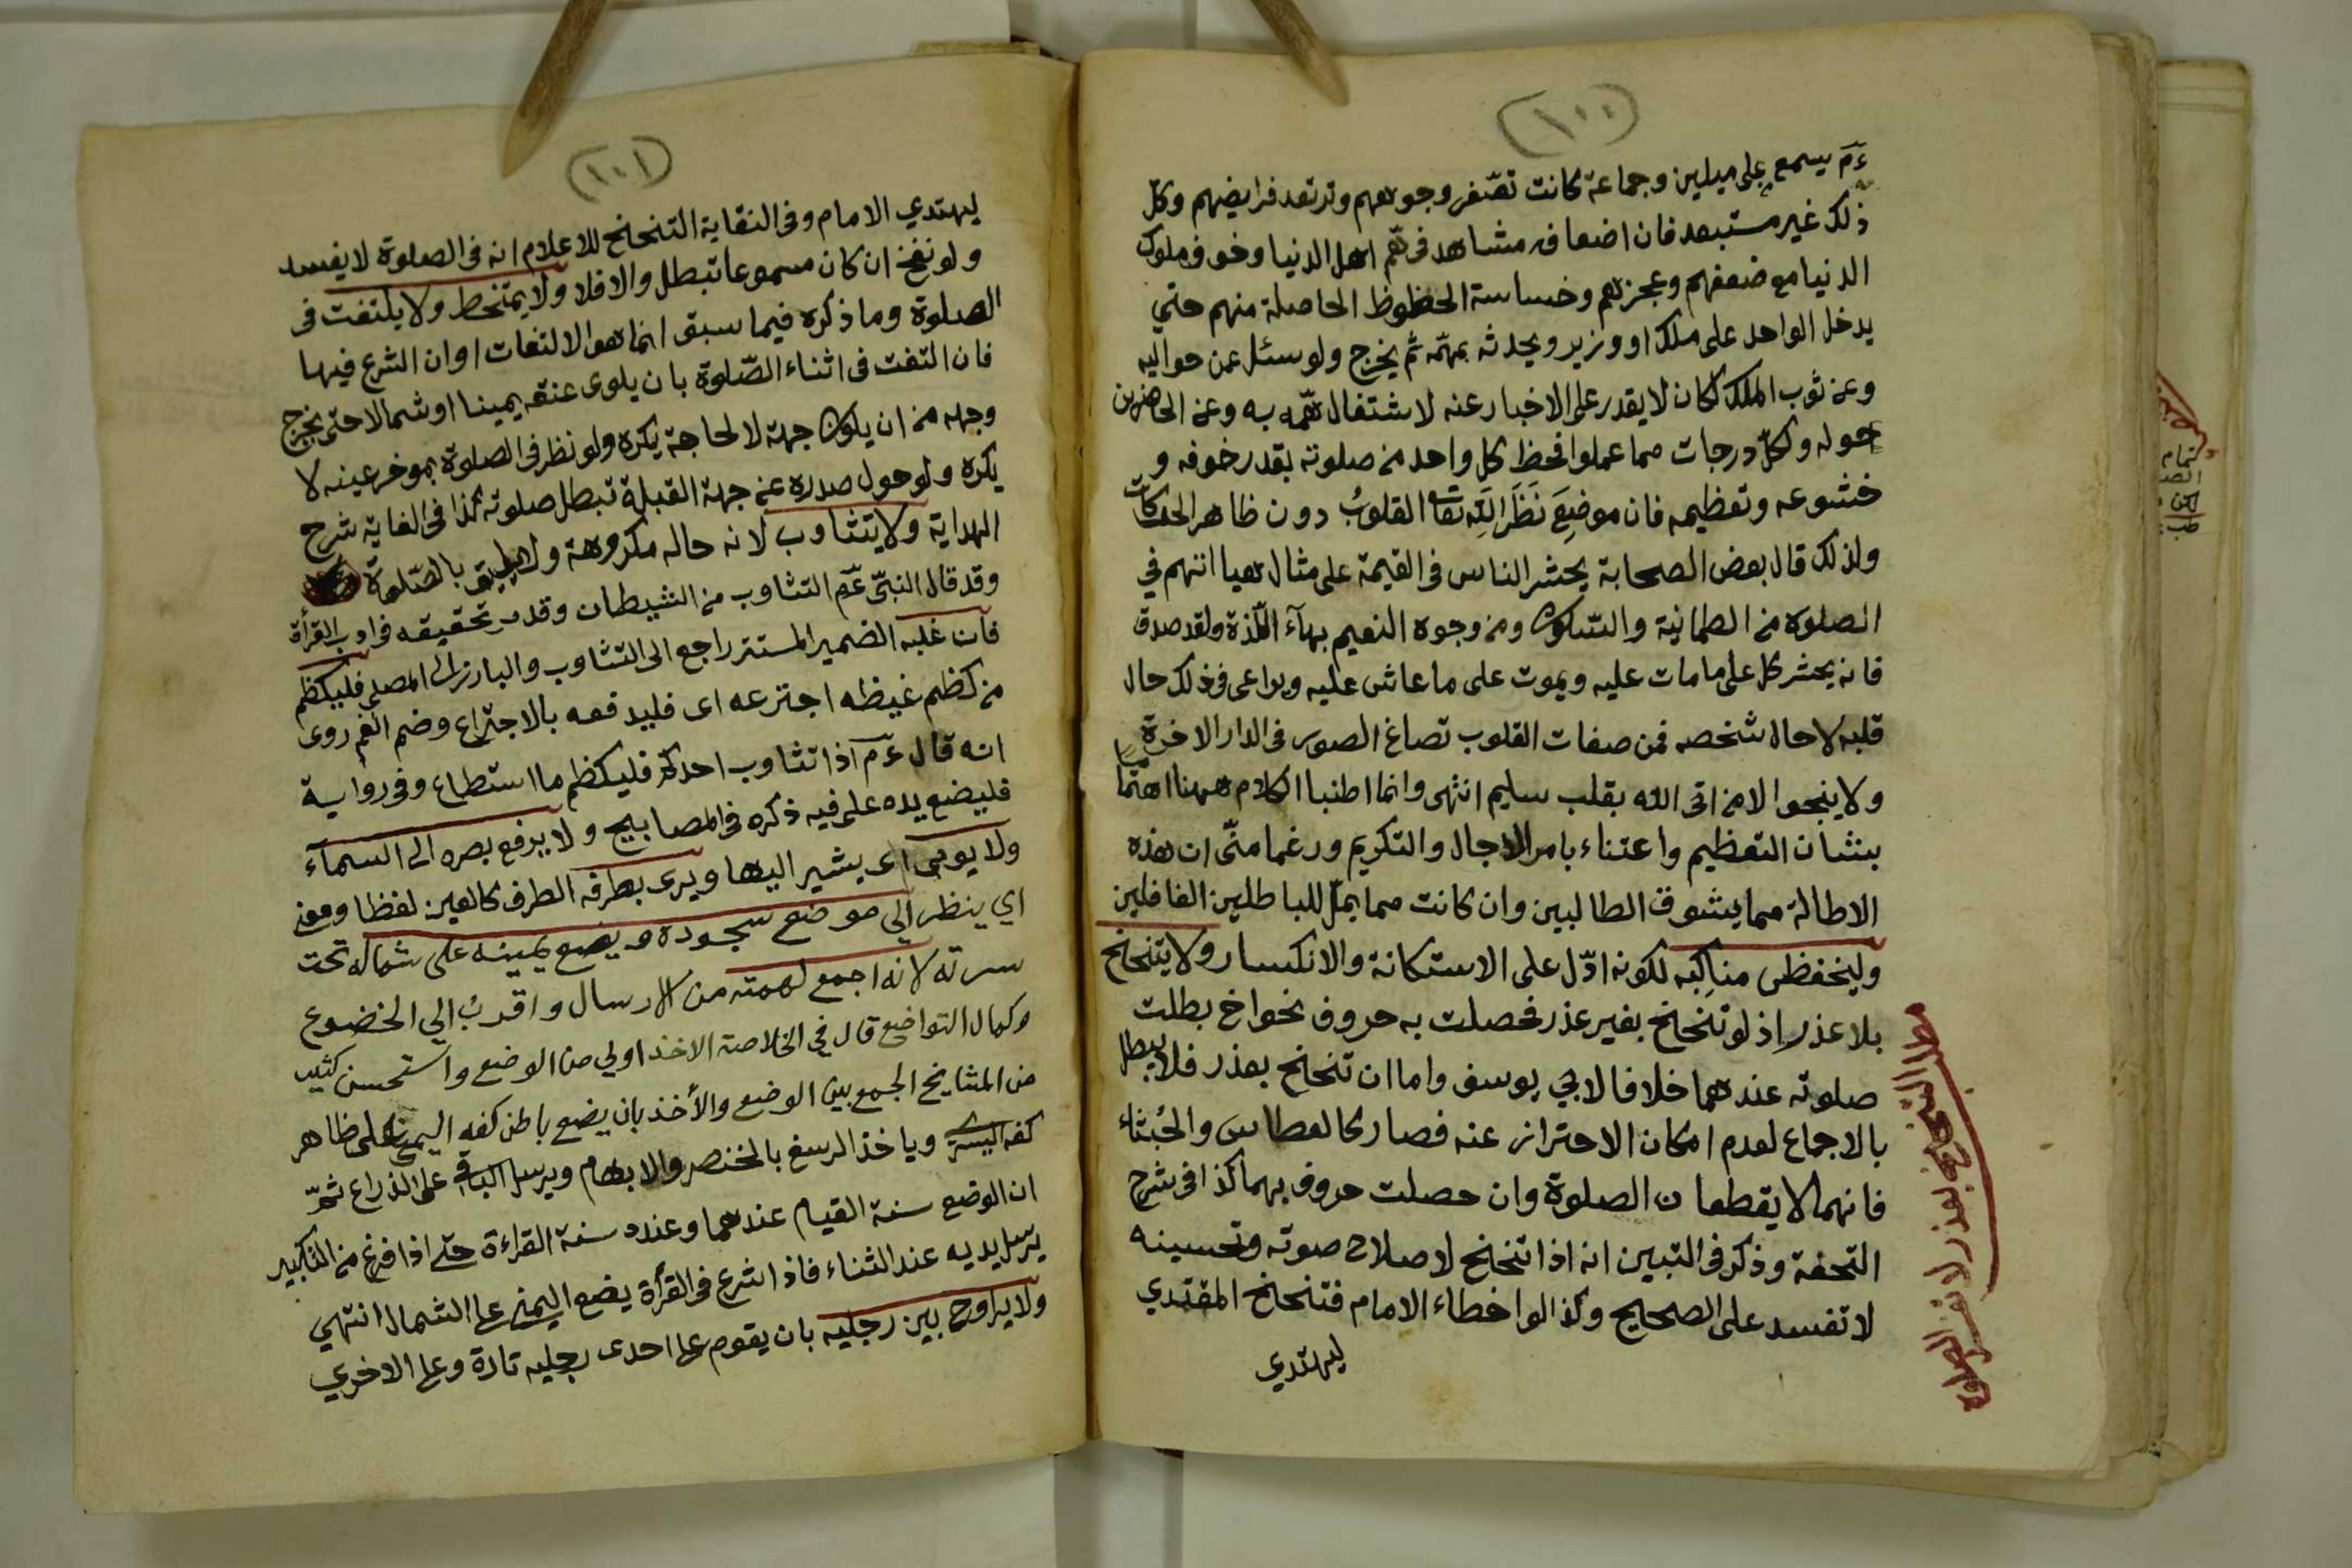 (١٠٠)
ءم يسمع على ميلين وجماعة كانت تصفر وجوههم وترتعد فرايضهم وكل
ذلك غير مستبعد فان اضعافه مشاهد فى همم اهل الدنيا وخوف ملوك
الدنيا مع ضعفهم وعجزهم وخساسة الحظوظ الحاصلة منهم حتي
يدخل الواحد على ملك او وزير ويحدثه بمهمّه ثم يخرج ولو سئل عمن حواليه
وعن ثوب الملك لكان لا يقدر على الاخبار عنه لاشتغال همّه به وعن الحاضرين
حوله ولكلّ درجات مما عملوا فحظ كل واحد من صلوته بقدر خوفه و
خشوعه وتعظيمه فان موضِعَ نَظَرَ اللّهِ تعا القلوبُ دون ظاهر الحركات
ولذلك قال بعض الصحابة يحشر الناس فى القيمة على مثال هيااتهم في
الصلوة من الطمانية والسّكون ومن وجوه النعيم بهآء اللّذة ولقد صدق
فانه يحشر كل على ما مات عليه ويموت على ما عاش عليه ويراعى فى ذلك حال
قلبه لا حال شخصه فمن صفات القلوب تصاغ الصور فى الدار الاخرة
ولا ينجوا الا من اتى الله بقلب سليم انتهى وانما اطنبا الكلام ههنا اهتماما
بشان التعظيم واعتناء بامر الاجال والتكريم ورغما منّى ان هذه
الاطالة مما يشوق الطالبين وان كانت مما يملّ للباطلين الغافلين
وليخفظ منَاكِبَه لكونه ادّل على الاستكانة والانكسار ولا يتنحنح
بلا عذر اذ لو تنحنح بغير عذر فحصلت به حروف نحو اخ بطلت
صلوته عندهما خلافا لابي يوسف واما ان تنحنح بعذر فلا يبطل
بالاجماع لعدم امكان الاحتراز عنه فصار كالعطاس والجُشاء
فانهما لا يقطعان الصلوة وان حصلت حروف بهما كذا فى شرح
التحفة وذكر فى التبيين انه اذا تنحنح لاصلاح صوته وتحسينه
لا تفسد على الصحيح وكذا لو اخطاء الامام فتنحنح المقتدي
ليهتدي
مطلب التنحنح بعذر لا تفسد الصلوة
تمام
(١٠١)
ليهتدي الامام وفى النقاية التنحنح للاعلام انه فى الصلوة لا يفسد
ولو نفخ ان كان مسموعا تبطل والا فلا ولا يمتخط ولا يلتفت فى
الصلوة وما ذكره فيما سبق انما هو الالتفات اوان الشرع فيها
فان التفت فى اثناء الصّلوة بان يلوى عنقه يمينا او شمالا حتى يخرج
وجهه من ان يكون جهة لا لحاجة يكره ولو نظر فى الصلوة بموخر عينه لا
يكره ولو حول صدره عن جهة القبلة تبطل صلوته كذا فى الغاية شرح
الهداية ولا يتثاوب لانه حاله مكروهة ولا يليق بالصّلوة
وقد قال النبيّ عمّ التثاوب من الشيطان وقد مر تحقيقه فى ادب القرأة
فان غلبه الضمير المستتر راجع الى التثاوب والبارز الى المصلى فليكظم
من كظم غيظه اجترعه اى فليدفعه بالاجتراع وضم الفم روى
انه قال ءم اذا تثاوب احدكم فليكظم ما استطاع وفى رواية
فليضع يده على فيه ذكره فى المصابيح ولا يرفع بصره الى السمآء
ولا يومي اى يشير اليها ويرى بطرفه الطرف كالعين لفظا ومعنى
اي ينظر الي موضع سجوده ويضع يمينه على شماله تحت
سرته لانه اجمع لهمته من الارسال واقربُ الي الخضوع
وكمال التواضع قال في الخلاصة الاخذ اولي من الوضع واستحسن كثير
من المشايخ الجمع بين الوضع والأخذ بان يضع باطن كفه اليمنى على ظاهر
كفه اليسرى وياخذ الرسغ بالخنصر والابهام ويرسل الباقى على الذراع ثمّ
ان الوضع سنة القيام عندهما وعنده سنة القراءة حتى اذا فرغ من التكبير
يرسل يديه عند الثناء فاذا شرع فى القرأة يضع اليمين على الشمال انتهي
ولا يراوح بين رجليه بان يقوم على احدى رجليه تارة وعلى الاخري